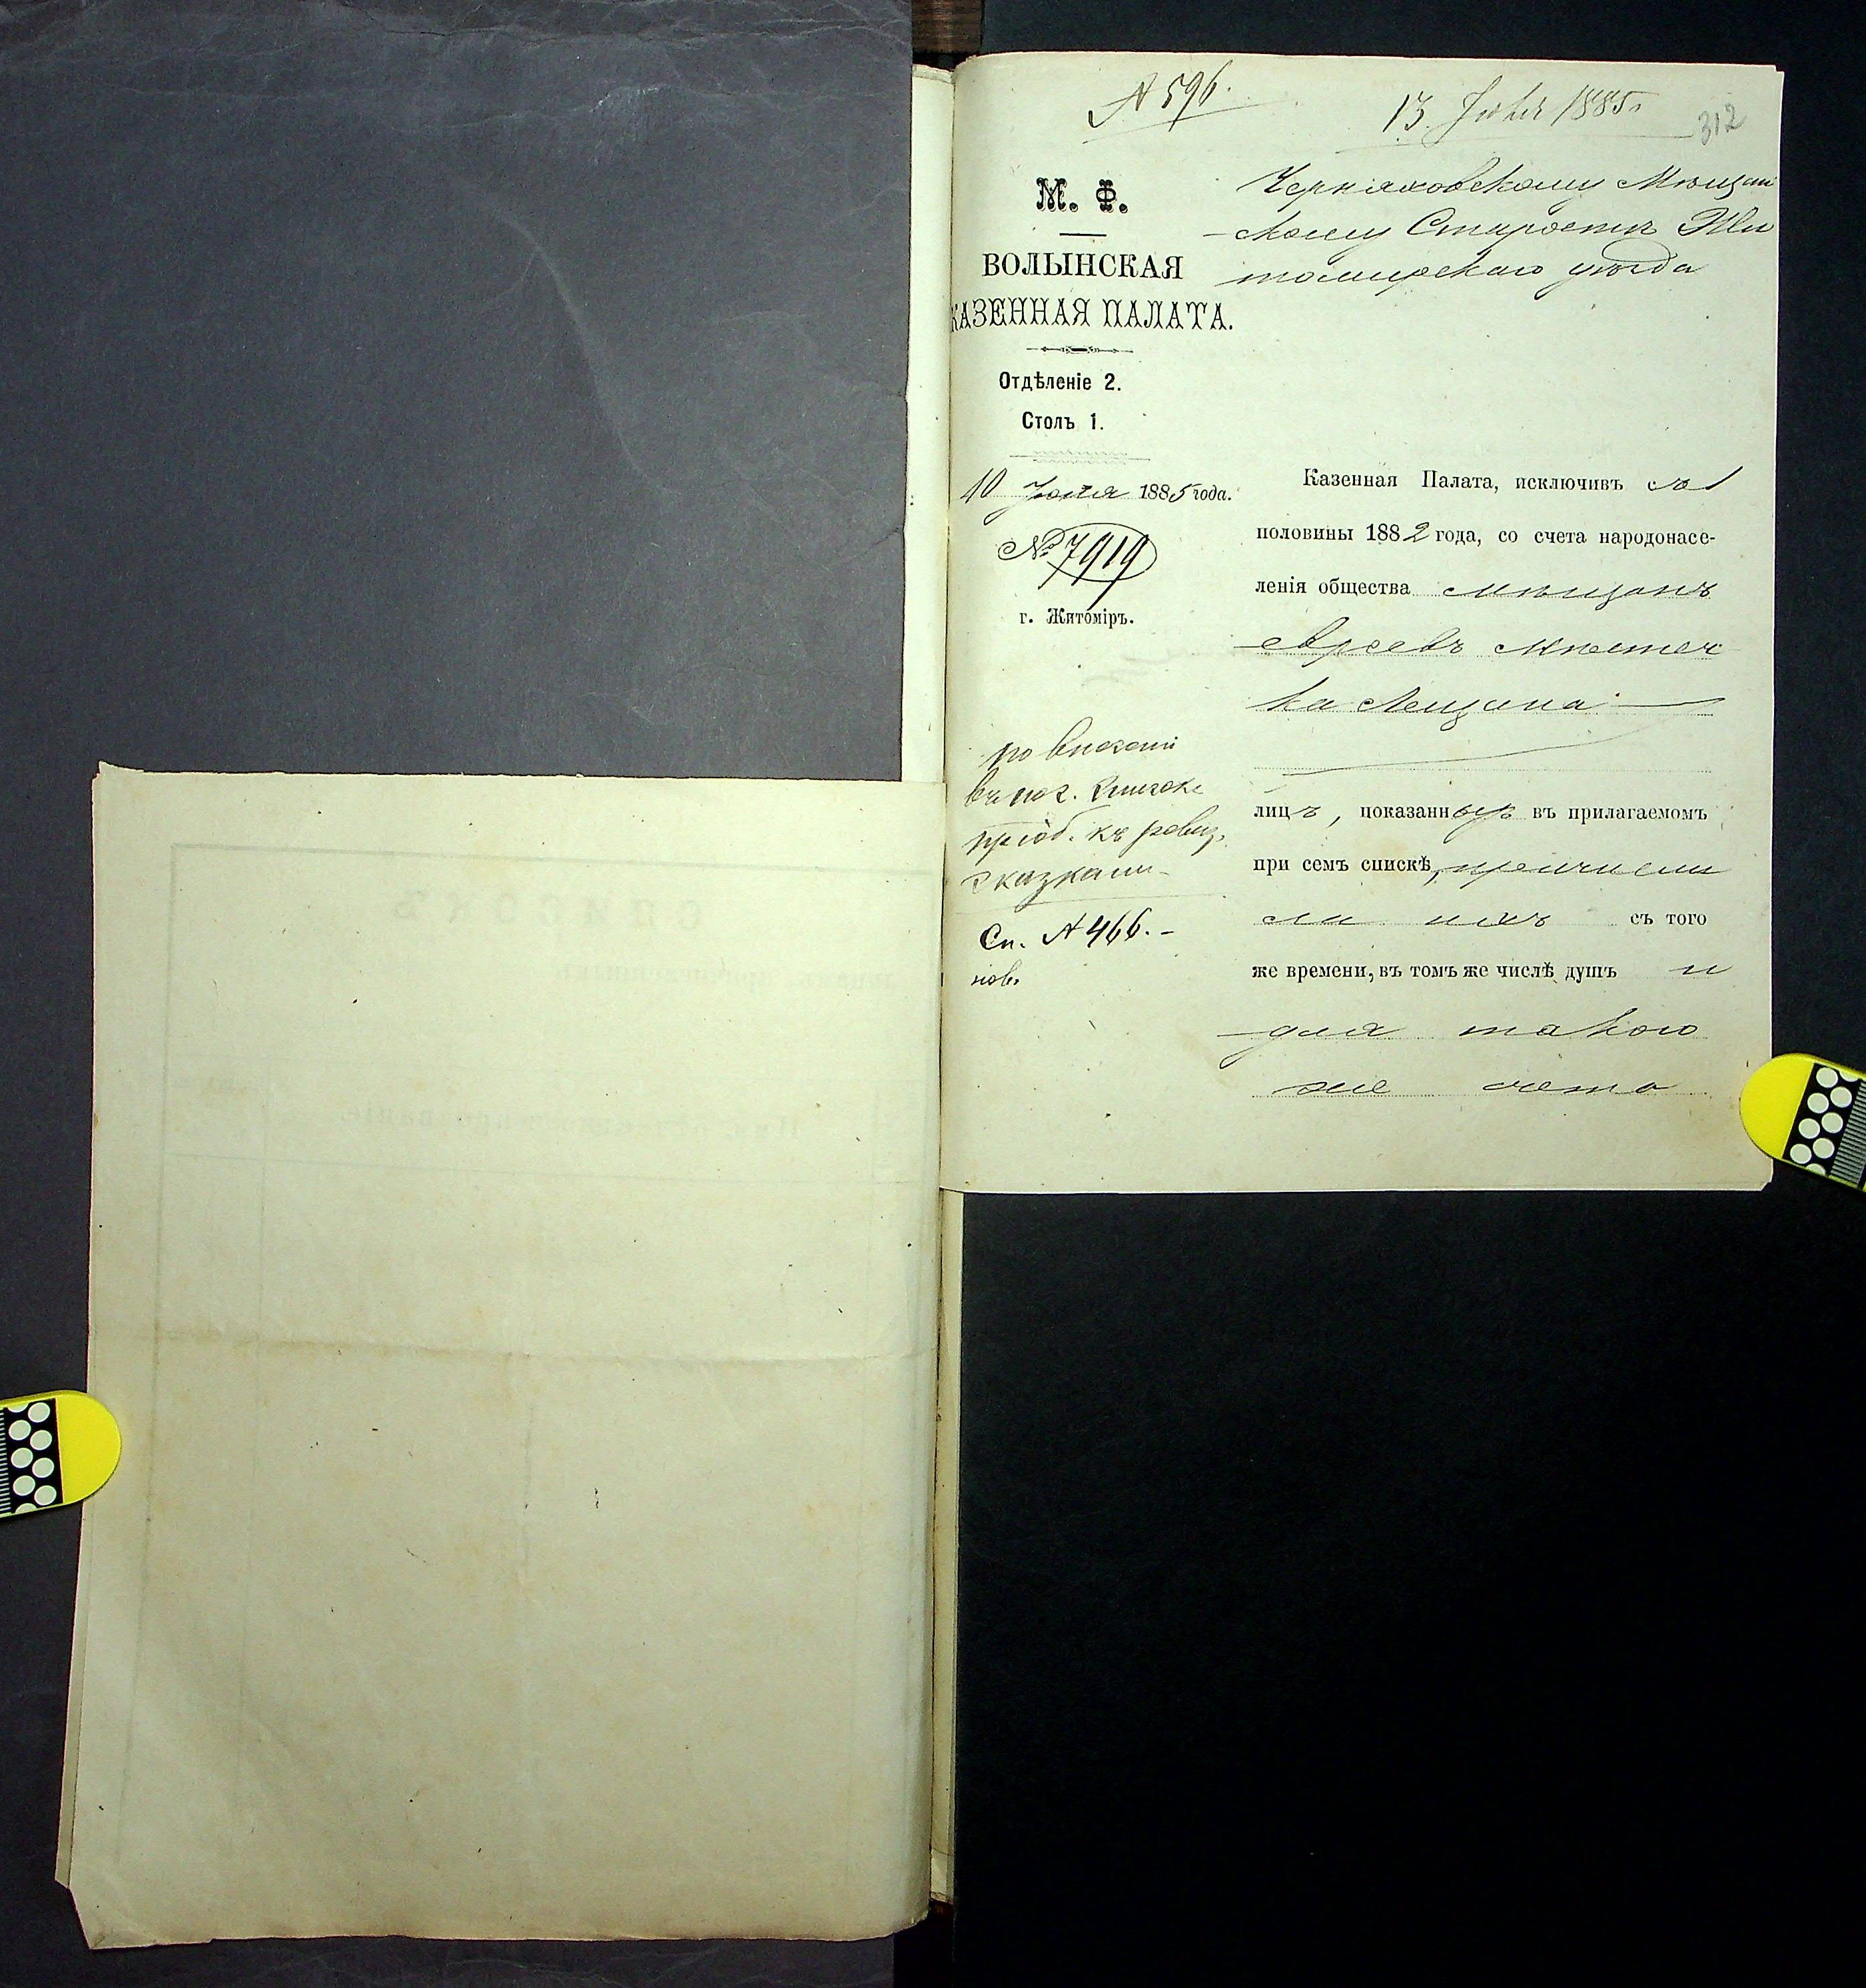 № 596.
13 Июля 1885 г.
312
М. Ф.
ВОЛЫНСКАЯ
КАЗЕННАЯ ПАЛАТА.
Отдѣленіе 2.
Столъ 1.
10 Іюля 1885 года.
№ 7919
г. Житомiръ.
по внесенiи
сказками
Сп. № 466. -
нов.
Черняховскому Мѣщан
скому Старостѣ Жи
томирскаго уѣзда
Казенная Палата, исключивъ съ 1
половины 1882 года, со счета народонасе-
ленія общества мѣщанъ
евреевъ мѣстеч
ка Лещина
лицъ, показанныхъ въ прилагаемомъ
при семъ спискѣ, причисли
ла ихъ съ того
же времени, въ томъ же числѣ душъ и
для такого
же счета
СПИСОКЪ